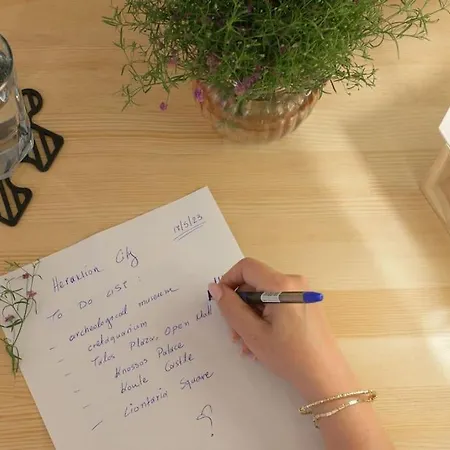 18/5/23
Heraklion City
TO DO LIST :
- archeological museum
- cretaquarium
- Talos Plaza. Open Mall
- Knossos Palace
- Koule Castle
- Liontaria Square